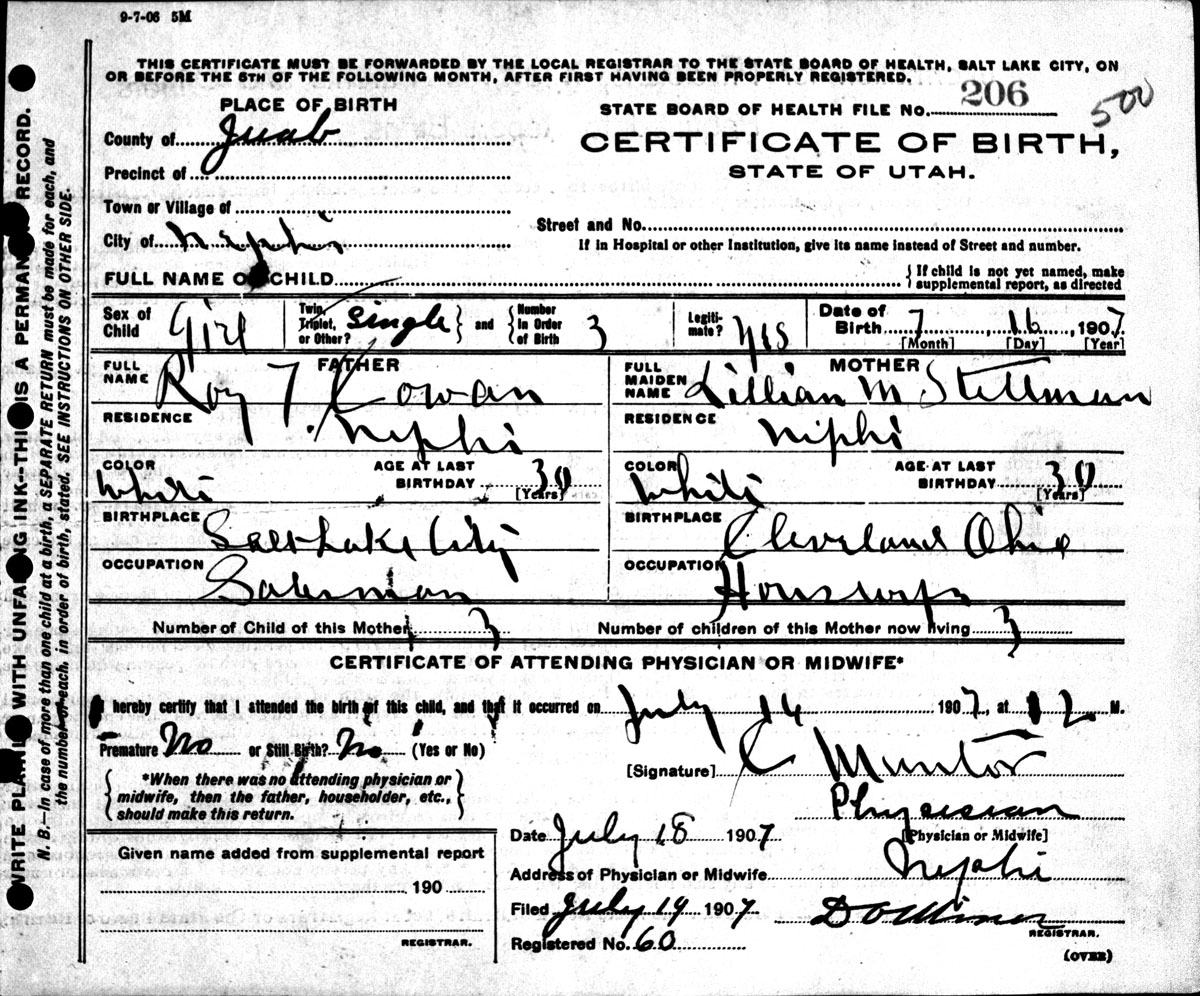 9-7-06 5M
THIS CERTIFICATE MUST BE FORWARDED BY THE LOCAL REGISTRAR TO THE STATE BOARD OF HEALTH, SALT LAKE CITY, ON
OR BEFORE THE 5TH OF THE FOLLOWING MONTH, AFTER FIRST HAVING BEEN PROPERLY REGISTERED.
PLACE OF BIRTH
STATE BOARD OF HEALTH FILE No. 206 500
County of Juab
CERTIFICATE OF BIRTH,
STATE OF UTAH.
Precinct of
Town or Village of
Street and No.
City of Nephi
If in Hospital or other Institution, give its name instead of Street and number.
FULL NAME OF CHILD
{If child is not yet named, make
supplemental report, as directed
Sex of Child Girl Twin, Triplet, or Other? Single } and { Number in Order of Birth 3 Legiti-mate? Yes Date of Birth 7, 16, 1907
[Month] [Day] [Year]
FATHER MOTHER
FULL NAME Roy T. Cowan FULL MAIDEN NAME Lillian M Stellman
RESIDENCE Nephi RESIDENCE Nephi
COLOR White AGE AT LAST BIRTHDAY 30 [Years] COLOR White AGE AT LAST BIRTHDAY 30 [Years]
BIRTHPLACE Salt Lake City BIRTHPLACE Cleveland Ohio
OCCUPATION Salesman OCCUPATION Housewife
Number of Child of this Mother 3 Number of children of this Mother now living 3
CERTIFICATE OF ATTENDING PHYSICIAN OR MIDWIFE*
I hereby certify that I attended the birth of this child, and that it occurred on July 16 1907, at 12 M.
Premature No or Still Birth? No (Yes or No)
[Signature]
*When there was no attending physician or
midwife, then the father, householder, etc.,
should make this return.
Physician
[Physician or Midwife]
Date July 18 1907
Given name added from supplemental report
190
REGISTRAR.
Address of Physician or Midwife Nephi
Filed July 19 1907
REGISTRAR.
Registered No. 60
(OVER)
WRITE PLAINLY WITH UNFADING INK--THIS IS A PERMANENT RECORD.
N. B.—In case of more than one child at a birth, a SEPARATE RETURN must be made for each, and
the number of each, in order of birth, stated. SEE INSTRUCTIONS ON OTHER SIDE.